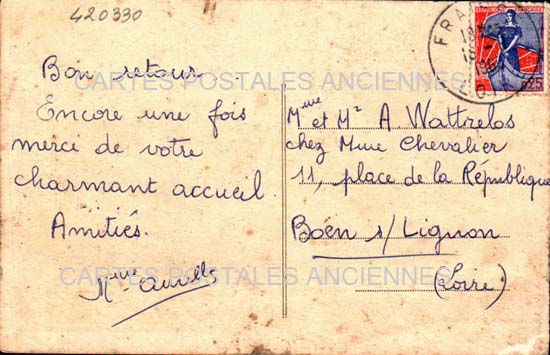 420330
Bon retour
Encore une fois
merci de votre
charmant accueil.
Amitiés.
Mme
Mme et Mr A. Wattrelos
chez Mme Chevalier
11, place de la République
Boën s/ Lignon
(Loire)
FRA
0,25
CARTES POSTALES ANCIENNES
CARTES POSTALES ANCIENNES